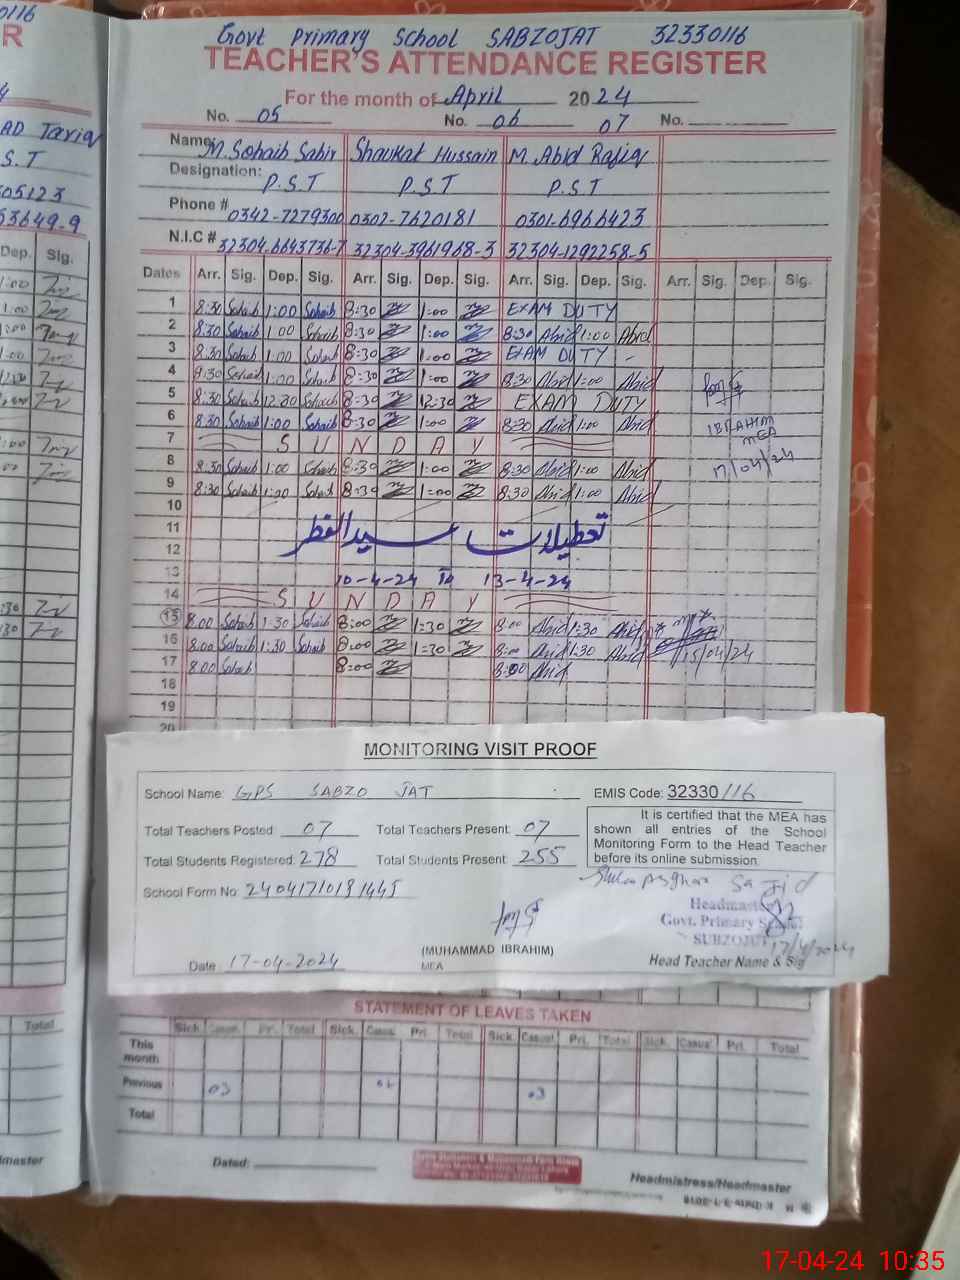 0116
R
AD Tariq
S.T
05123
53649-9
Dep. Sig.
Govt Primary School SABZOJAT 32330116
TEACHER'S ATTENDANCE REGISTER
For the month of April 2024
No. 05 No. 06 07 No.
Name: M. Sohaib Sabir Shaukat Hussain M. Abid Rafiq
Designation: P.S.T P.S.T P.S.T
Phone # 0342-7279300 0302-7620181 0301-6966423
N.I.C # 32304-6643736-7 32304-3961968-3 32304-1292258-5
Dates Arr. Sig. Dep. Sig. Arr. Sig. Dep. Sig. Arr. Sig. Dep. Sig. Arr. Sig. Dep. Sig.
1 8:30 Sohaib 1:00 Sohaib 8:30 1:00 EXAM DUTY
2 8:30 Sohaib 1:00 Sohaib 8:30 1:00 8:30 Abid 1:00 Abid
3 8:30 Sohaib 1:00 Sohaib 8:30 1:00 EXAM DUTY -
4 8:30 Sohaib 1:00 Sohaib 8:30 1:00 8:30 Abid 1:00 Abid
5 8:30 Sohaib 12:30 Sohaib 8:30 12:30 EXAM DUTY
6 8:30 Sohaib 1:00 Sohaib 8:30 1:00 8:30 Abid 1:00 Abid
IBRAHIM
MEA
17/04/24
7 S U N D A Y
8 8:30 Sohaib 1:00 Sohaib 8:30 1:00 8:30 Abid 1:00 Abid
9 8:30 Sohaib 1:00 Sohaib 8:30 1:00 8:30 Abid 1:00 Abid
10
11 تعطیلات عیدالفطر
12
13 10-4-24 To 13-4-24
14 S U N D A Y
15 8:00 Sohaib 1:30 Sohaib 8:00 1:30 8:00 Abid 1:30 Abid
16 8:00 Sohaib 1:30 Sohaib 8:00 1:30 8:00 Abid 1:30 Abid 15/04/24
17 8:00 Sohaib 8:00 8:00 Abid
18
19
20
MONITORING VISIT PROOF
School Name: GPS SABZO JAT EMIS Code: 32330116
Total Teachers Posted: 07 Total Teachers Present: 07
Total Students Registered: 278 Total Students Present: 255
School Form No: 24041710181445
It is certified that the MEA has
shown all entries of the School
Monitoring Form to the Head Teacher
before its online submission.
Sajid
Headmaster
Govt. Primary School
SUBZOJAT 17/4/2024
(MUHAMMAD IBRAHIM)
MEA
Date: 17-04-2024
Head Teacher Name & Sig
STATEMENT OF LEAVES TAKEN
Total Sick. Casual Pri. Total Sick. Casual Pri. Total Sick. Casual Pri. Total Sick. Casual Pri. Total
This month
Previous 03 03
Total
Dated:
Headmistress/Headmaster
dmaster
17-04-24 10:35